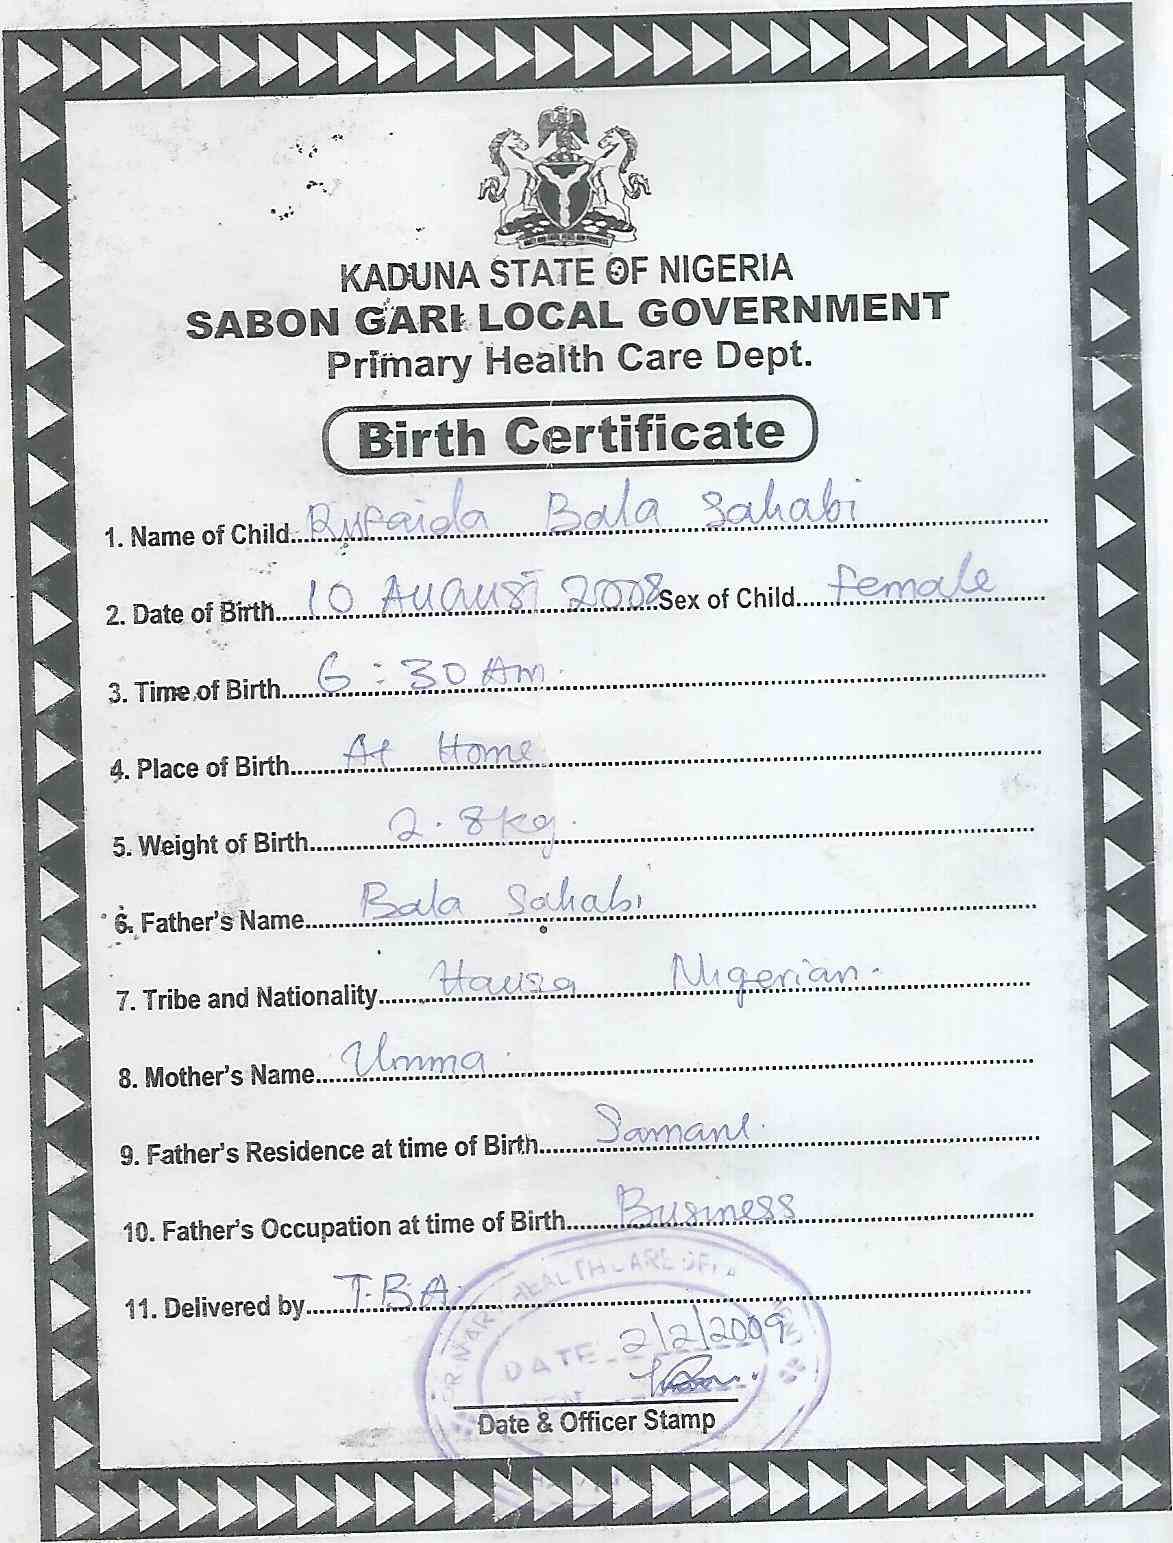 KADUNA STATE OF NIGERIA
SABON GARI LOCAL GOVERNMENT
Primary Health Care Dept.
Birth Certificate
1. Name of Child Rufaida Bala Sahabi
2. Date of Birth 10 AUGUST 2008 Sex of Child female
3. Time of Birth 6:30 Am.
4. Place of Birth At Home
5. Weight of Birth 2.8kg.
6. Father's Name Bala Sahabi
7. Tribe and Nationality Hausa Nigerian.
8. Mother's Name Umma.
9. Father's Residence at time of Birth
10. Father's Occupation at time of Birth Business
11. Delivered by T.B.A.
HEALTH CARE
DATE 2/2/2009
Date & Officer Stamp